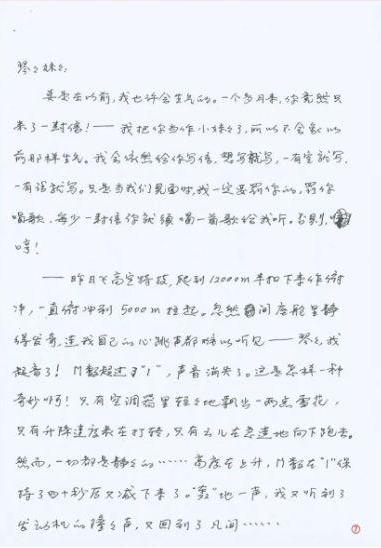 琴琴妹妹:
要是在以前,我也许会生气的。一个多月来,你竟然只
来了一封信!——我把你当作小妹妹了,所以不会象以
前那样生气。我会依然给你写信,想写就写,一有空就写,
一有话就写。只是当我们见面时,我一定要罚你的,罚你
唱歌,每少一封信你就须唱一首歌给我听。否则,
哼!
——昨日飞高空特技,爬到12000m半扣下来作俯
冲,一直俯冲到5000m拉起。忽然间座舱里静
得出奇,连我自己的心跳声都难以听见——琴琴,我
超音了!M数超过了“1”,声音消失了。这是怎样一种
奇妙啊!只有空调箱里轻轻地飘出一两点雪花,
只有升降速度表在打转,只有云儿在急速地向下跑去。
然而,一切都是静静的……高度在上升,M数在“1”保
持了四十秒后又减下来了。“轰”地一声,我又听到了
发动机的隆隆声,又回到了凡间……
7